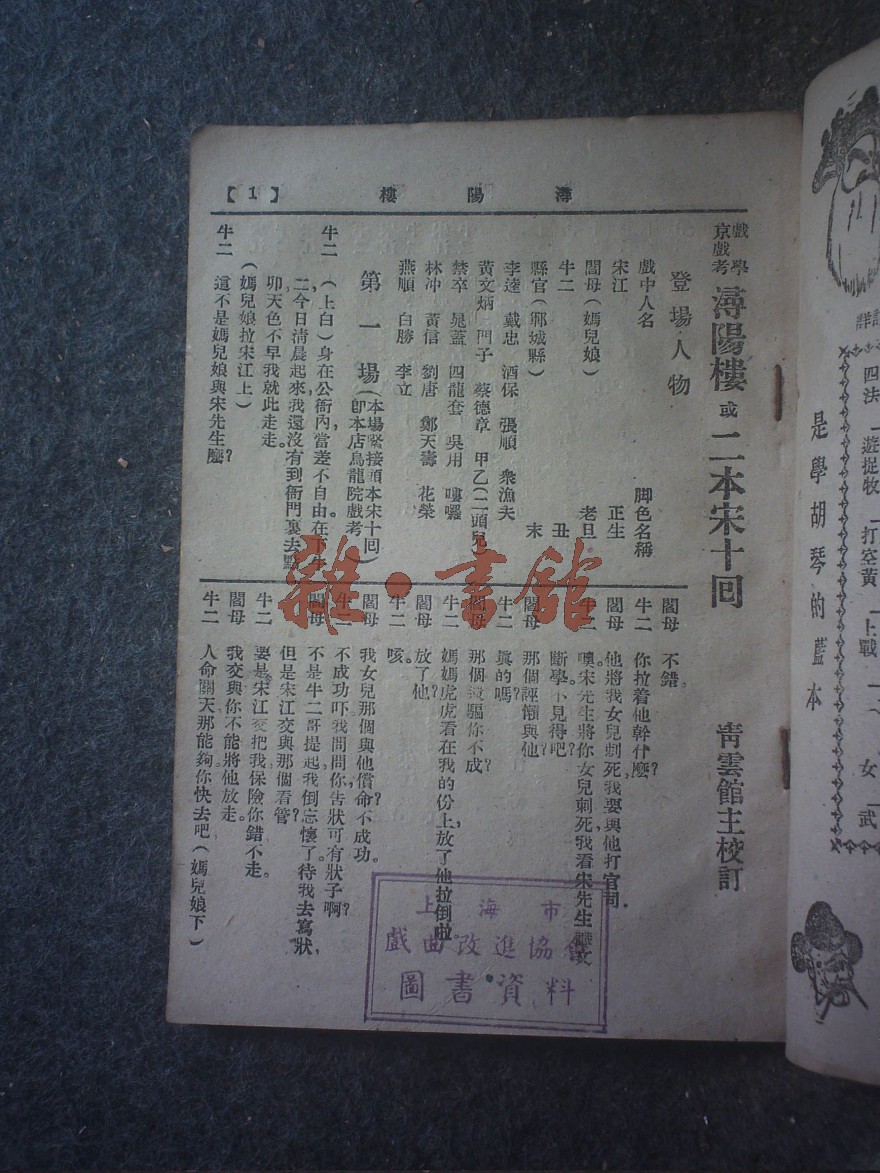 【1】 樓 陽 潯
戲學
京戲考
潯陽樓 或 二本宋十回
青雲館主校訂
登場人物
戲中人名 脚色名稱
宋江 正生
閻母(媽兒娘) 老旦
牛二 丑
縣官(鄆城縣) 末
李逵 戴忠 酒保 張順 衆漁夫
黃文炳 門子 蔡德章 甲乙(二頭兒)
禁卒 晁蓋 四龍套 吳用 嘍囉
林冲 黃信 劉唐 鄭天壽 花榮
燕順 白勝 李立
第一場(本場緊接頭本宋十回)
(即本店烏龍院戲考)
牛二 (上白)身在公衙內,當差不自由。在下牛
二今日清晨起來,我還沒有到衙門裏去點
卯天色不早我就此走走。
(媽兒娘拉宋江上)
牛二 這不是媽兒娘與宋先生麼?
閻母 不錯。
牛二 你拉着他幹什麼?
閻母 他將我女兒刺死,我要與他打官司.
牛二 噢宋先生將你女兒刺死,我看宋先生
斷學不見得吧?
閻母 那個誣懶與他
牛二 眞的嗎?
閻母 那個 騙你不成?
牛二 媽媽虎虎看在我的份上,放了他拉倒啦。
閻母 放了他?
牛二 咳。
閻母 我女兒那個與他償命?不成功。
牛二 不成功吓我問問你告狀可有狀子啊?
閻母 不是牛二哥提起,我倒忘懷了。待我去寫狀,
但是宋江交與那個看管?
牛二 要是宋江交把我保險你錯不走。
閻母 我交與你不能將他放走。
牛二 人命關天那能夠你快去吧(媽兒娘下)
雜·書館
上海市
戲曲改進協會
圖書資料
四法 「遊捉牧 「打空黃 「上戰
女 「武
是學胡琴的藍本